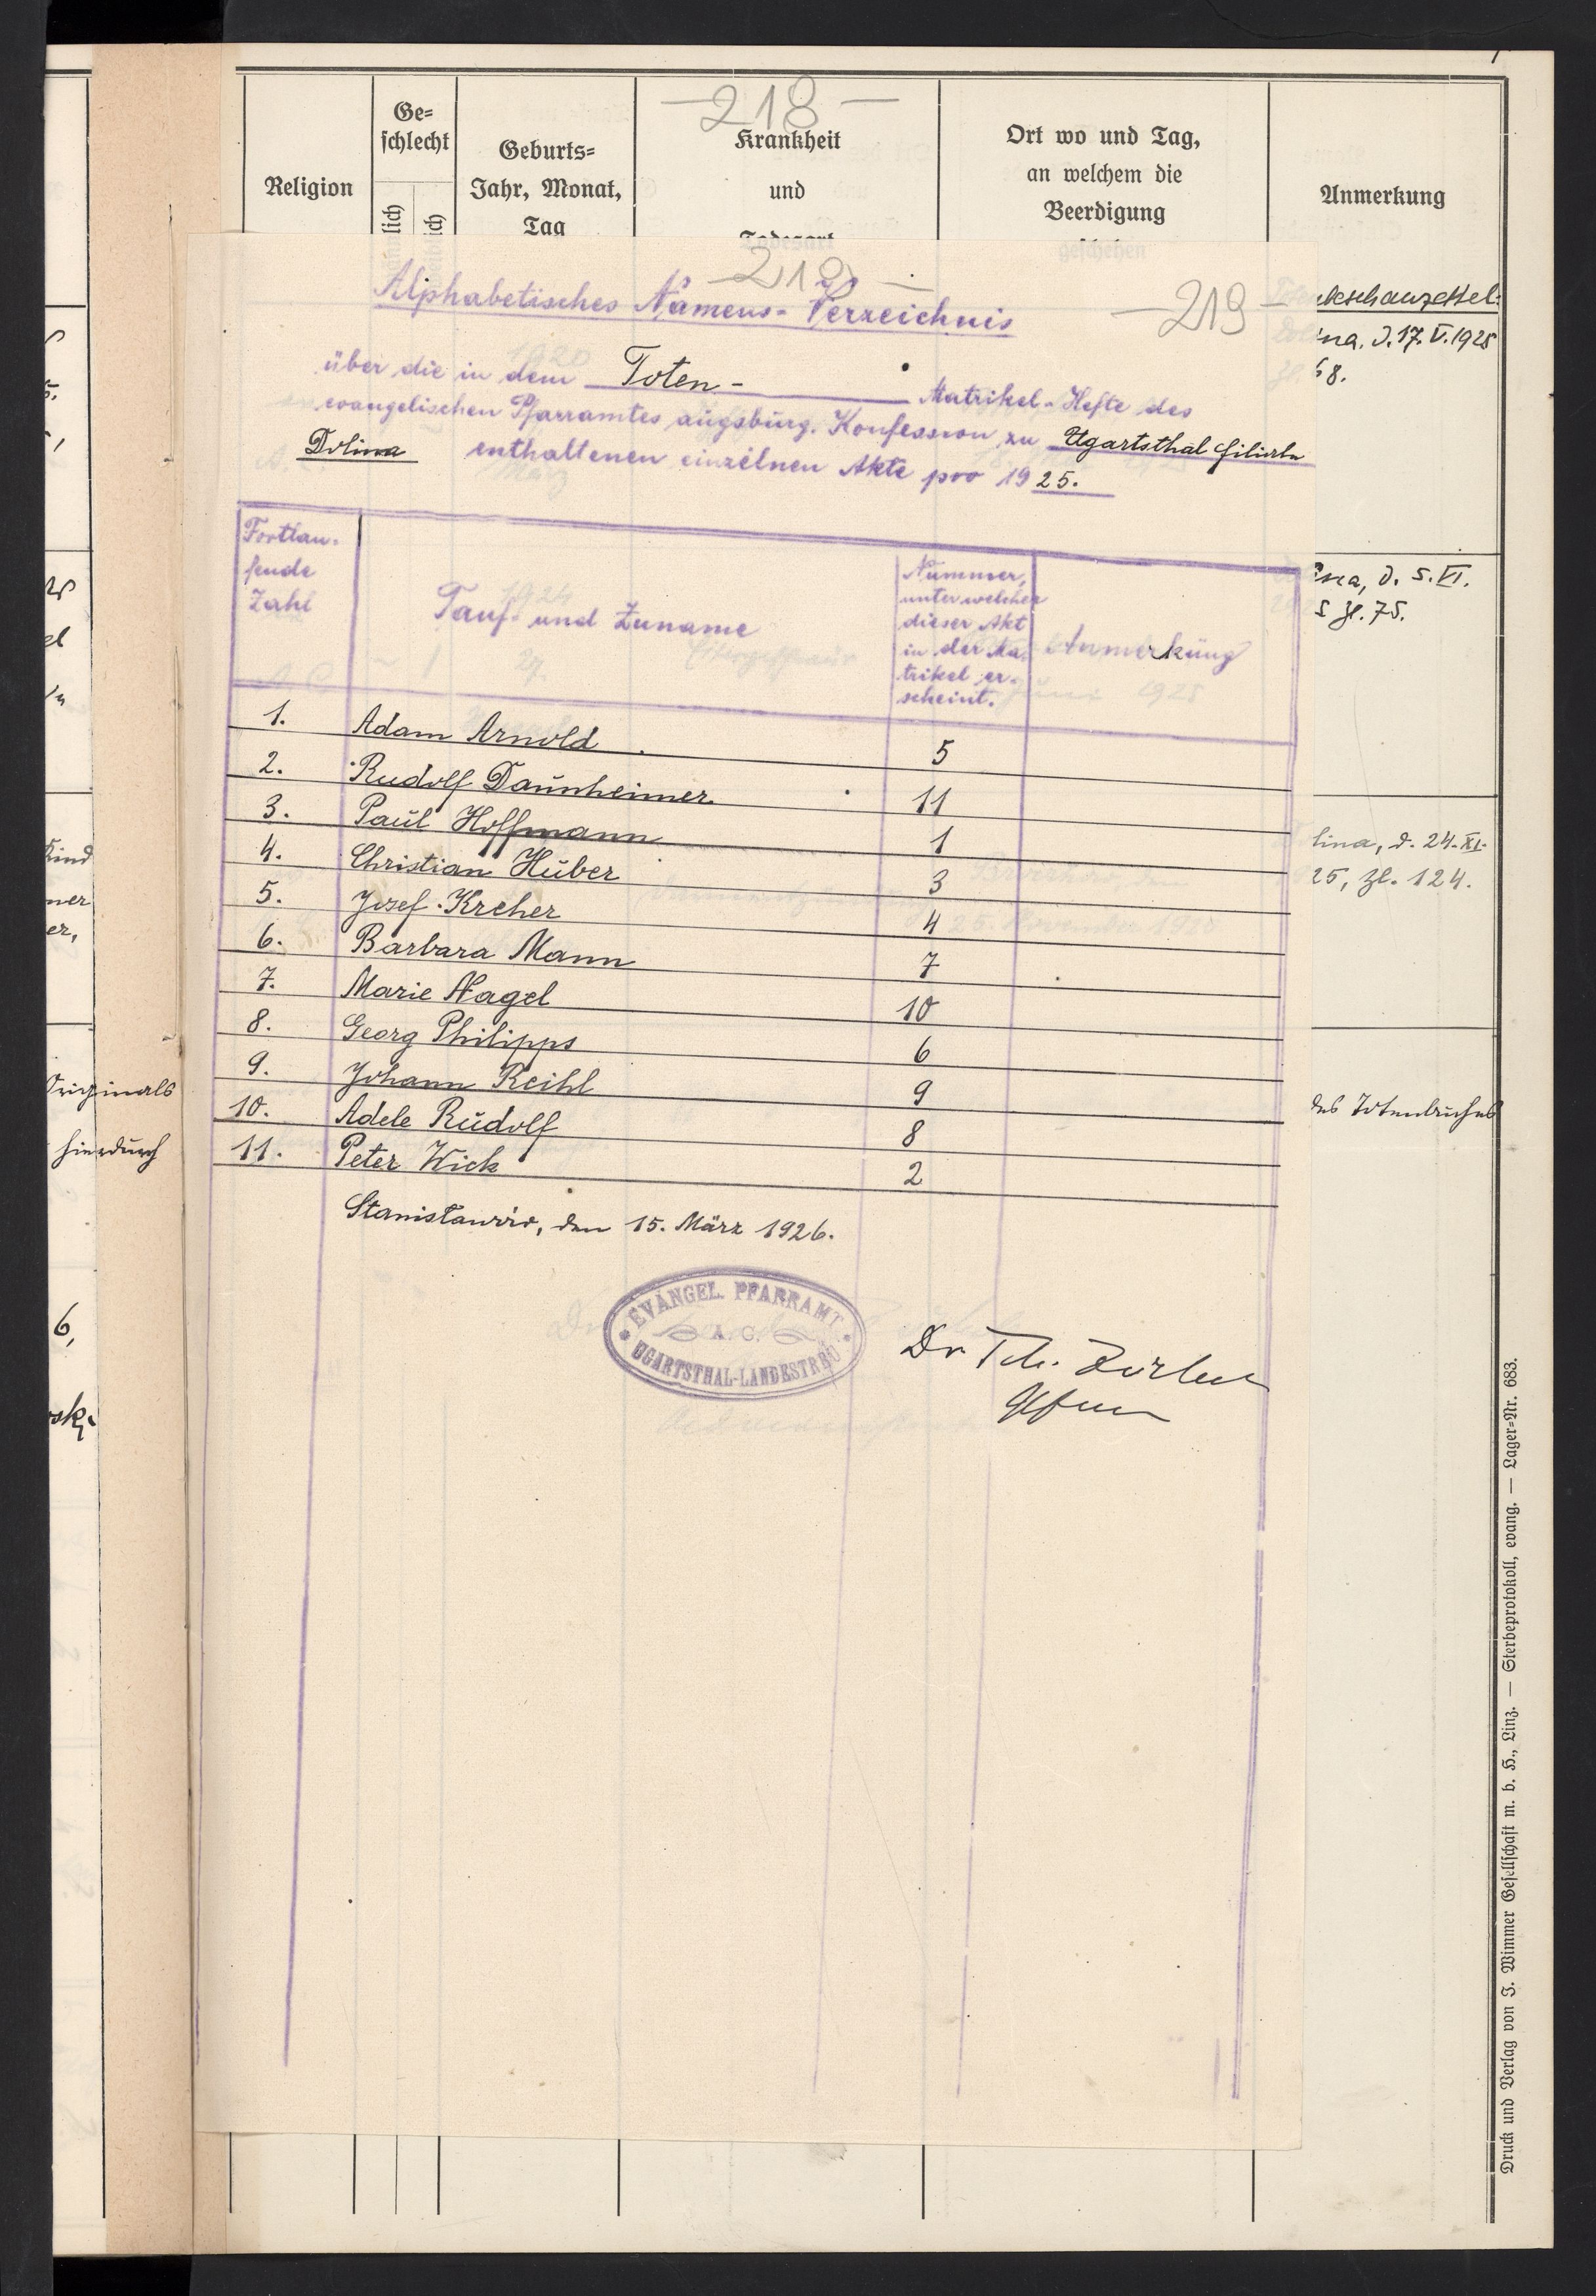 -218-
Religion
Ge=
schlecht
Geburts=
Jahr, Monat,
Tag
Krankheit
und
Todesart
Ort wo und Tag,
an welchem die
Beerdigung
geschehen
Anmerkung
-219-
Alphabetisches Namens-Verzeichnis
über die in dem Toten- Matrikel-Hefte des
evangelischen Pfarramtes augsburg. Konfession zu Ugartsthal Filiale
Dolina enthaltenen einzelnen Akte pro 1925.
Fortlau-
fende
Zahl
Tauf- und Zuname
Nummer,
unter welcher
dieser Akt
in der Ma-
trikel er-
scheint.
Anmerkung
1. Adam Arnold 5
2. Rudolf Daunheimer 11
3. Paul Hoffmann 1
4. Christian Huber 3
5. Josef Krcher 4
6. Barbara Mann 7
7. Marie Nagel 10
8. Georg Philipps 6
9. Johann Reihl 9
10. Adele Rudolf 8
11. Peter Wick 2
Stanisławów, den 15. März 1926.
EVANGEL. PFARRAMT
A. C.
UGARTSTHAL-LANDESTREU
Dr Th. Zöckler
ina, d. 17. V. 1925
68.
d. 5. VI.
5 Zl. 75.
lina, d. 24. XI.
25, Zl. 124.
des Totenbuches
Kind
ner
er,
Originals
hierdurch
6,
Druck und Verlag von J. Wimmer Gesellschaft m. b. H., Linz. — Sterbeprotokoll, evang. — Lager=Nr. 683.